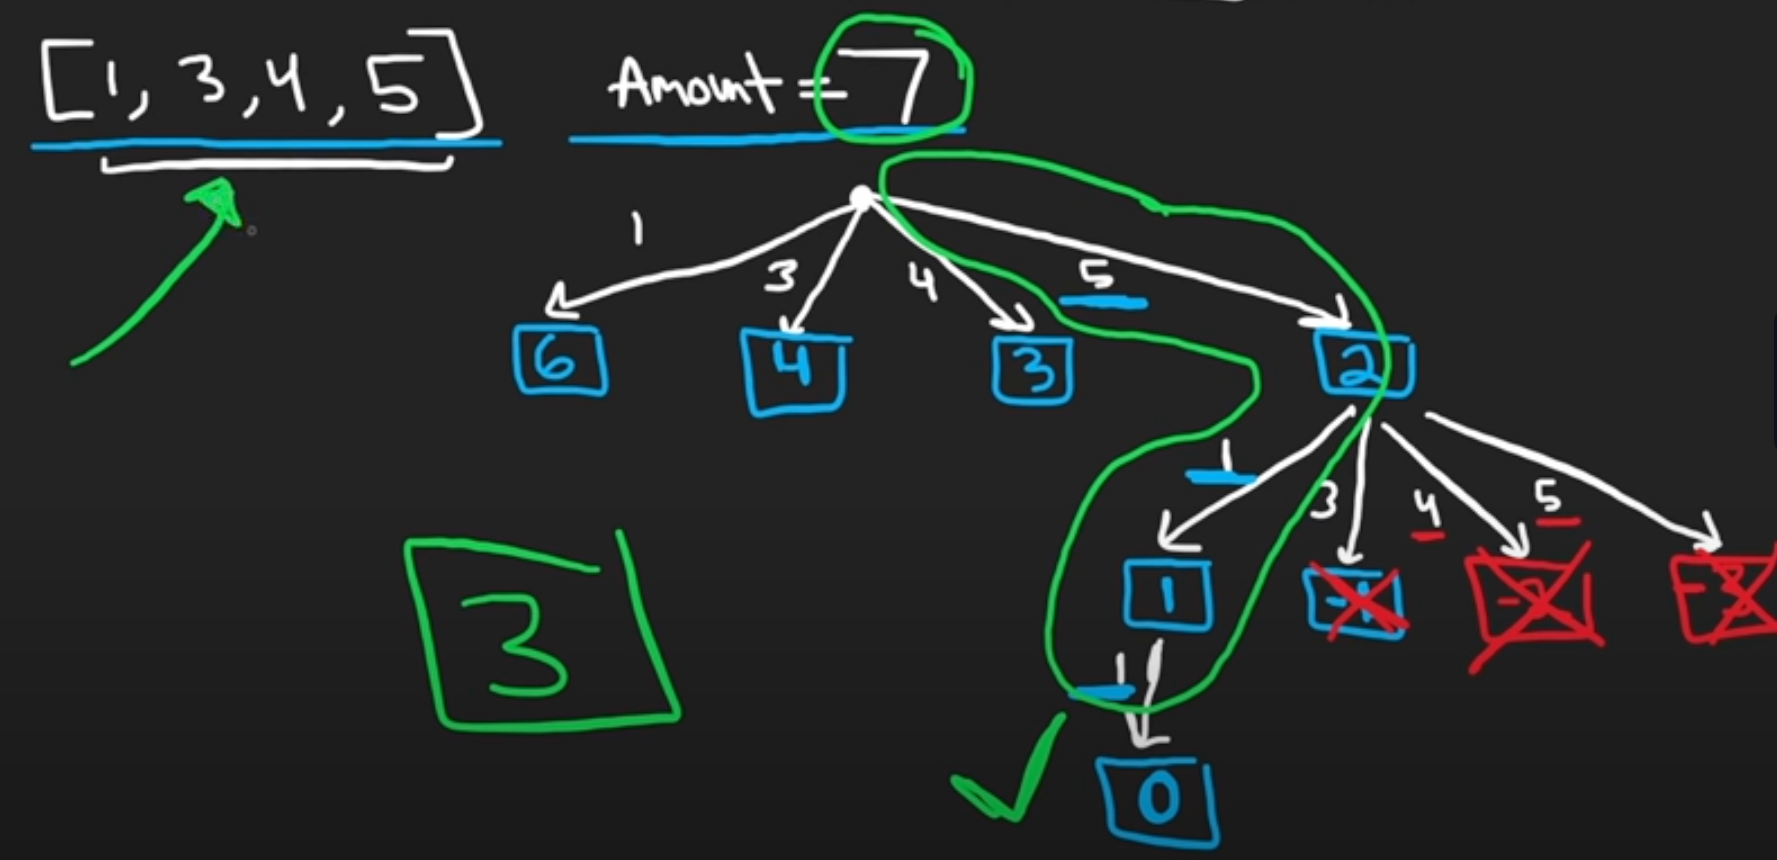 [1, 3, 4, 5] Amount = 7
1 3 4 5
6 4 3 2
1 3 4 5
1 -1 -2 -3
3
1
0